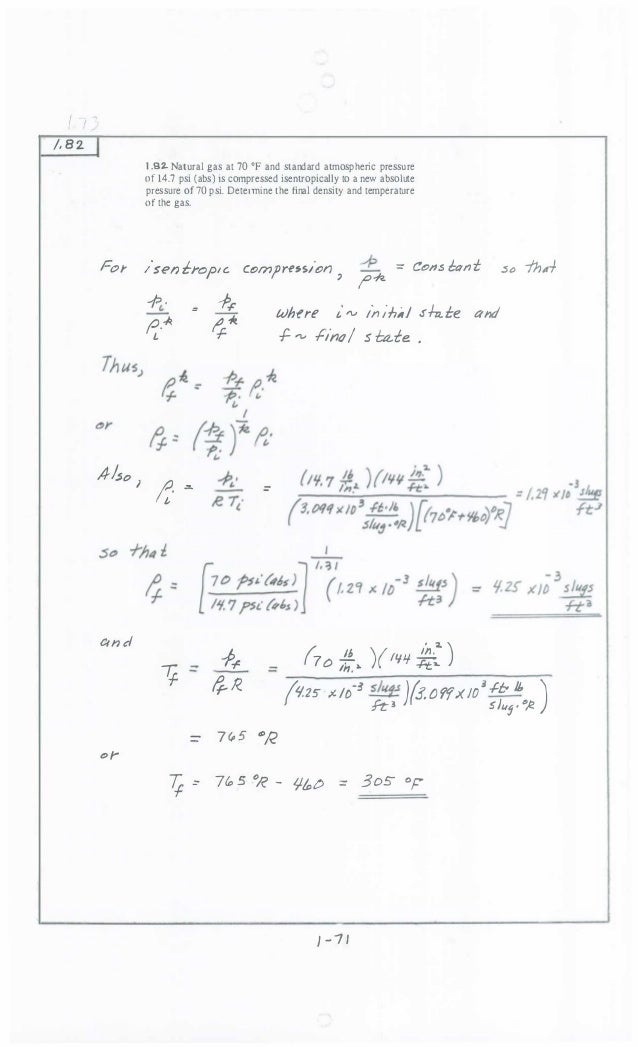 1.73
1.82
1.82 Natural gas at 70 °F and standard atmospheric pressure
of 14.7 psi (abs) is compressed isentropically to a new absolute
pressure of 70 psi. Determine the final density and temperature
of the gas.
For isentropic compression, p/ρ^k = constant so that
p_i/ρ_i^k = p_f/ρ_f^k where i ~ initial state and
f ~ final state.
Thus, ρ_f^k = p_f/p_i ρ_i^k
or ρ_f = (p_f/p_i)^(1/k) ρ_i
Also, ρ_i = p_i/(R T_i) = (14.7 lb/in.²)(144 in.²/ft²) / (3.099 x 10³ ft·lb/slug·°R)[(70°F+460)°R] = 1.29 x 10^-3 slugs/ft³
so that
ρ_f = [70 psi (abs) / 14.7 psi (abs)]^(1/1.31) (1.29 x 10^-3 slugs/ft³) = 4.25 x 10^-3 slugs/ft³
and
T_f = p_f/(ρ_f R) = (70 lb/in.²)(144 in.²/ft²) / (4.25 x 10^-3 slugs/ft³)(3.099 x 10³ ft·lb/slug·°R)
= 765 °R
or
T_f = 765 °R - 460 = 305 °F
1-71